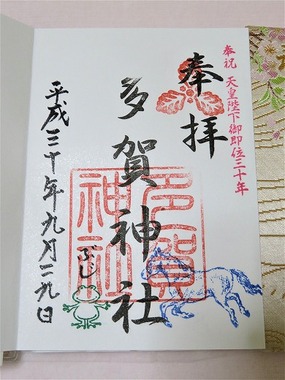 奉祝 天皇陛下御即位三十年
奉拝
多賀神社
多賀
神社
ぶじ
平成三十年九月二九日